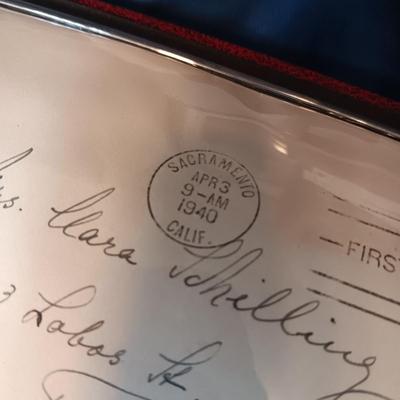 SACRAMENTO
APR 3
9-AM
1940
CALIF.
—FIRS
Mrs. Clara Schilling
Lobos St